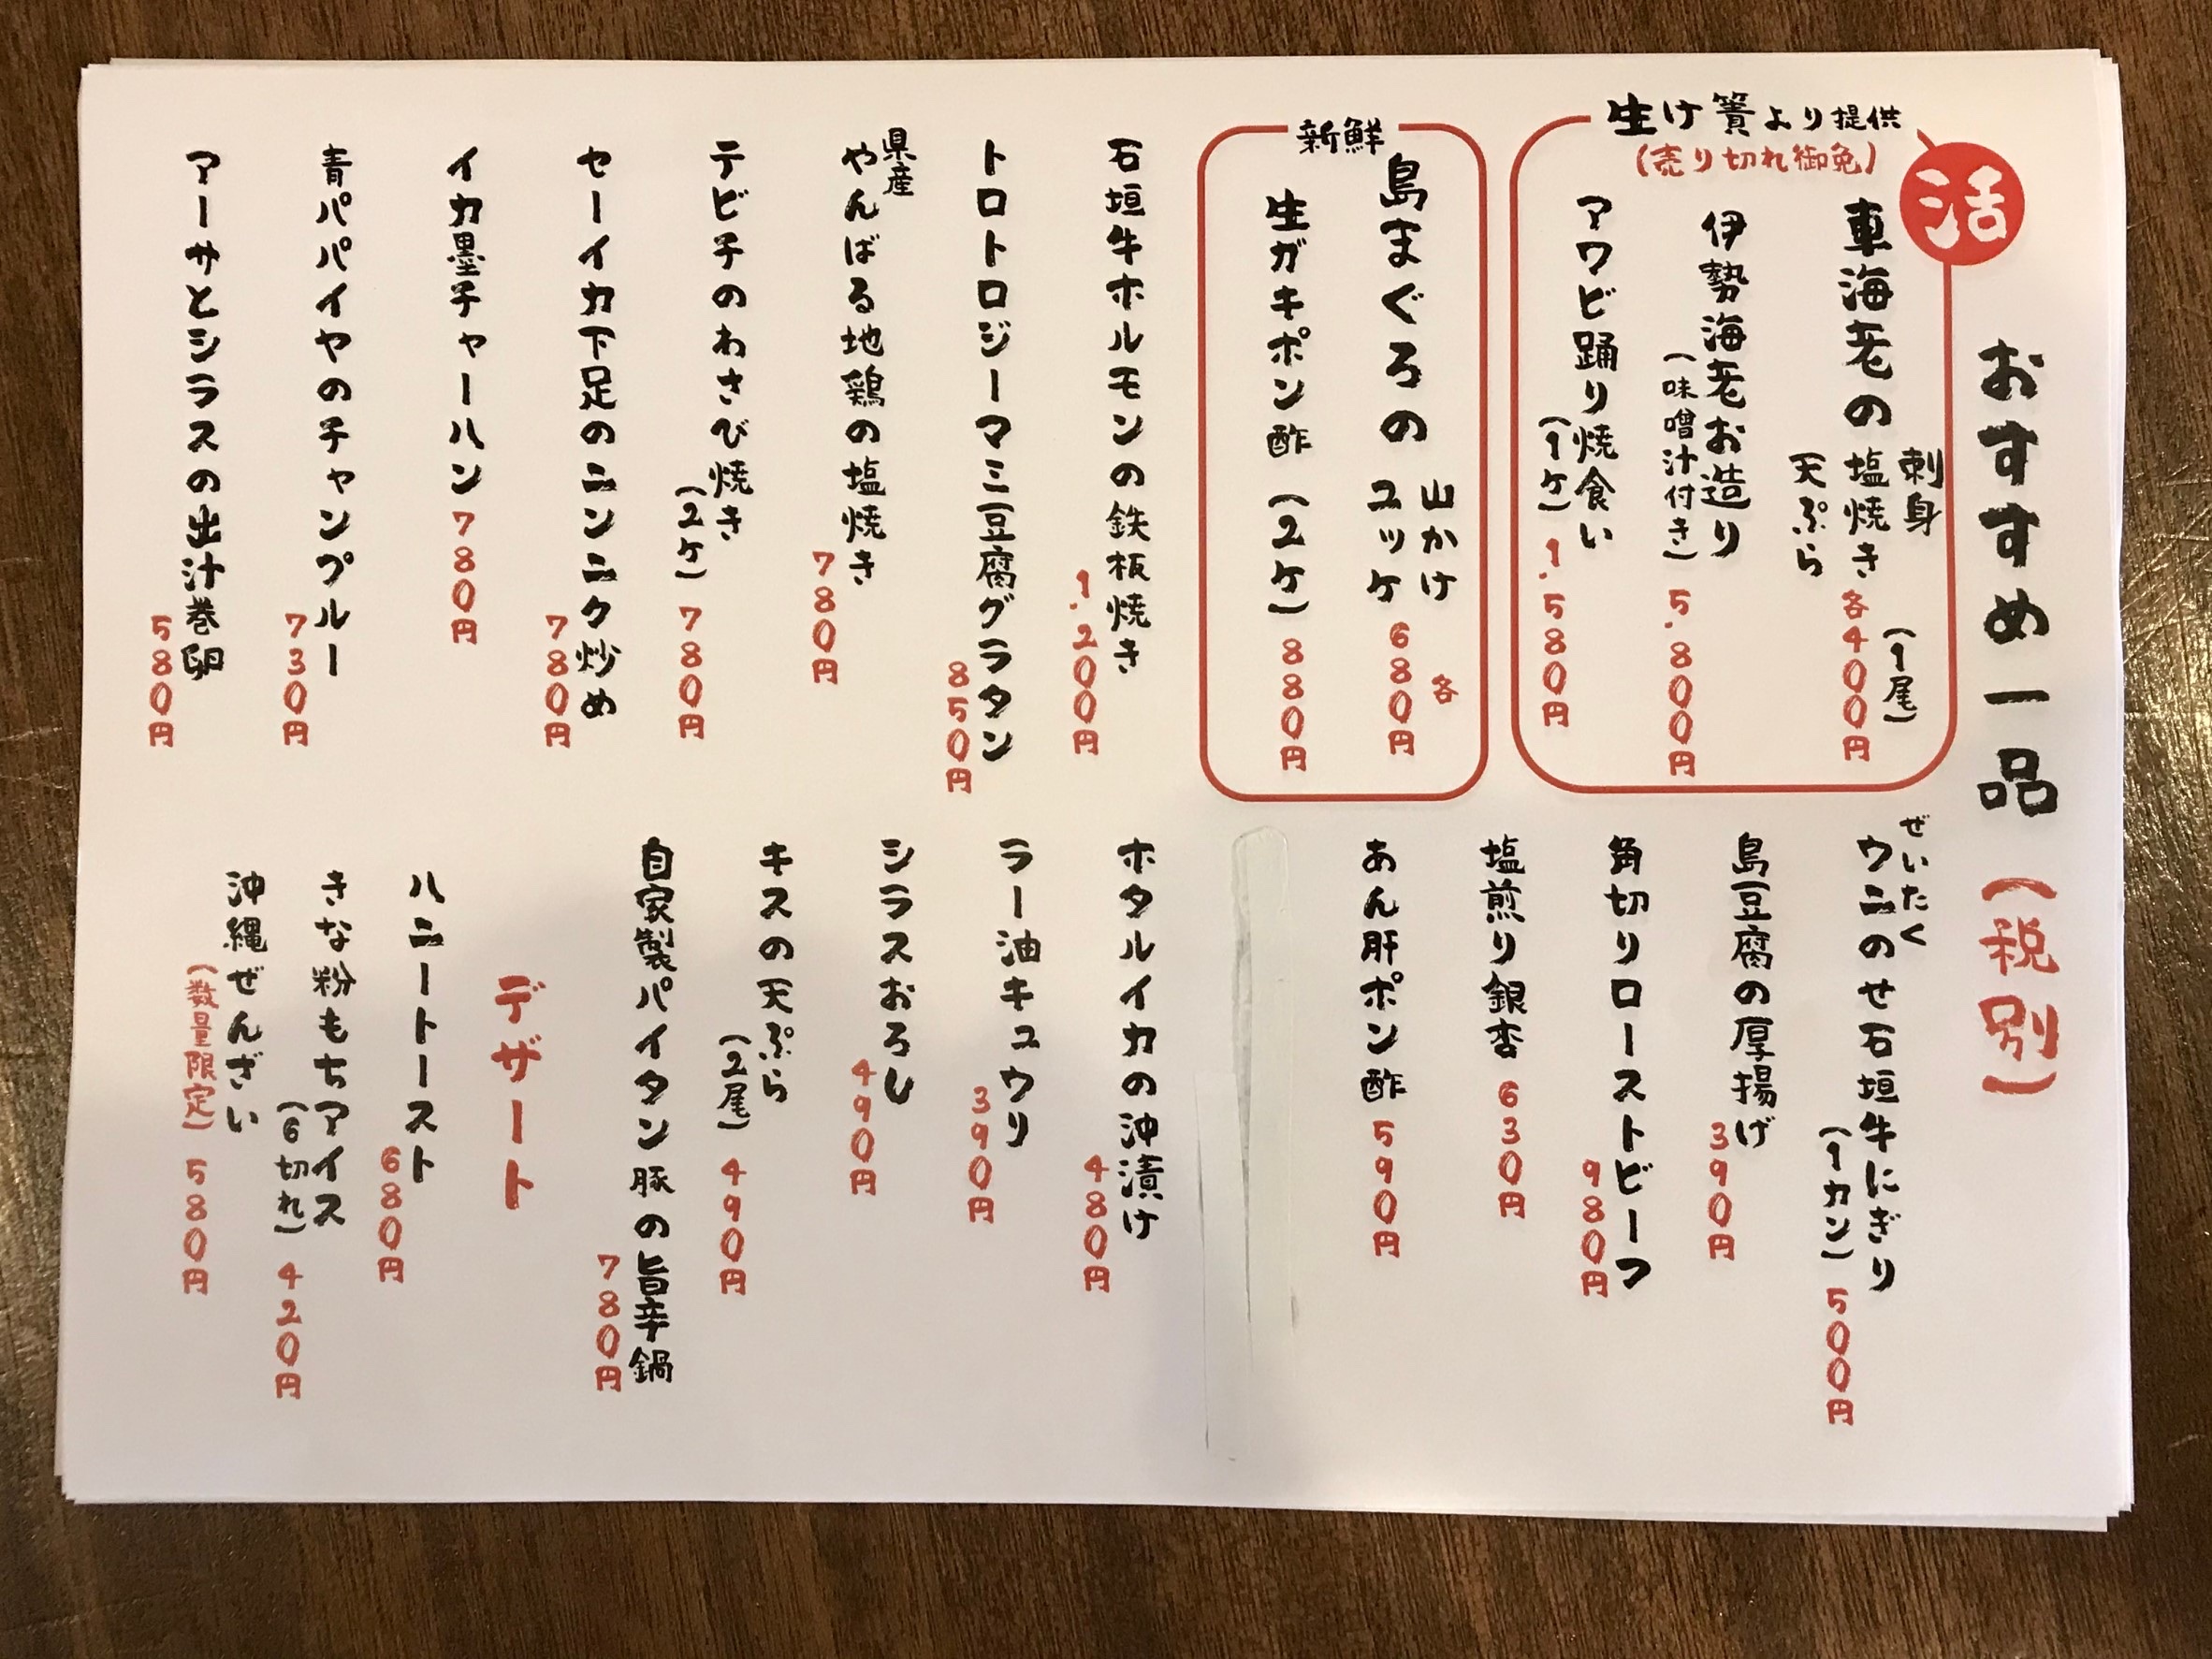 おすすめ一品（税別）
活
生け簀より提供
（売り切れ御免）
車海老の
刺身
塩焼き
天ぷら
（1尾）
各400円
伊勢海老お造り
（味噌汁付き）5.800円
アワビ踊り焼食い
（1ケ）1.580円
新鮮
島まぐろの
山かけ
ユッケ
各
680円
生ガキポン酢（2ケ）880円
石垣牛ホルモンの鉄板焼き
1.200円
トロトロジーマミ豆腐グラタン
850円
県産
やんばる地鶏の塩焼き
780円
テビチのわさび焼き
（2ケ）780円
セーイカ下足のニンニク炒め
780円
イカ墨チャーハン780円
青パパイヤのチャンプルー
730円
アーサとシラスの出汁巻卵
580円
ぜいたく
ウニのせ石垣牛にぎり
（1カン）500円
島豆腐の厚揚げ
390円
角切りローストビーフ
980円
塩煎り銀杏630円
あん肝ポン酢590円
ホタルイカの沖漬け
480円
ラー油キュウリ
390円
シラスおろし
490円
キスの天ぷら
（2尾）490円
自家製パイタン豚の旨辛鍋
780円
デザート
ハニートースト
680円
きな粉もちアイス
（6切れ）420円
沖縄ぜんざい
（数量限定）580円